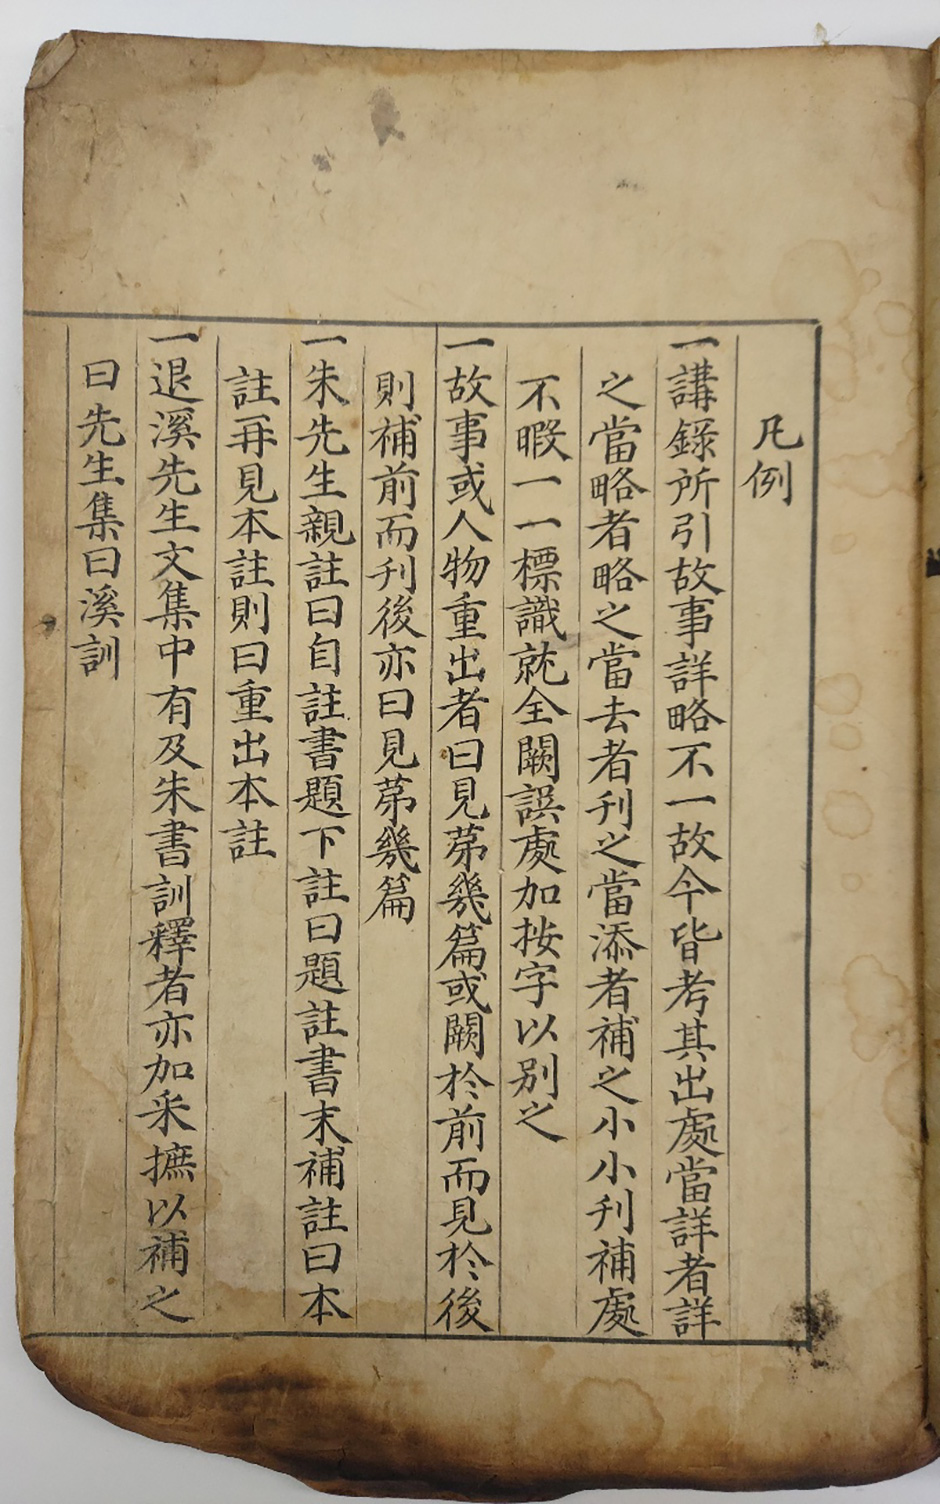 凡例
一講錄所引故事詳略不一故今皆考其出處當詳者詳
之當略者略之當去者刋之當添者補之小小刋補處
不暇一一標識就全闕誤處加按字以别之
一故事或人物重出者曰見苐幾篇或闕於前而見於後
則補前而刋後亦曰見苐幾篇
一朱先生親註曰自註書題下註曰題註書末補註曰本
註再見本註則曰重出本註
一退溪先生文集中有及朱書訓釋者亦加采摭以補之
曰先生集曰溪訓